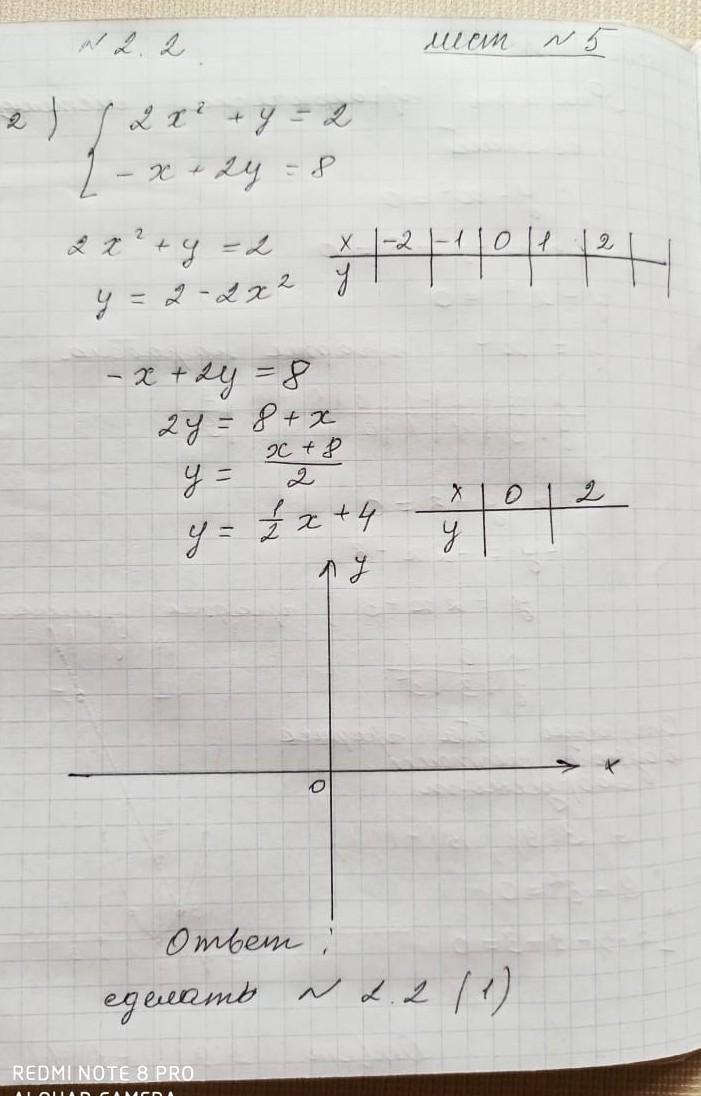 N 2.2. лист N 5
2) { 2x² + y = 2
- x + 2y = 8
2x² + y = 2 x | -2 | -1 | 0 | 1 | 2
y = 2 - 2x² y
- x + 2y = 8
2y = 8 + x
y = (x + 8)/2
y = 1/2 x + 4 x | 0 | 2
y
y
x
0
Ответ :
сделать N 2.2 (1)
REDMI NOTE 8 PRO
AI QUAD CAMERA